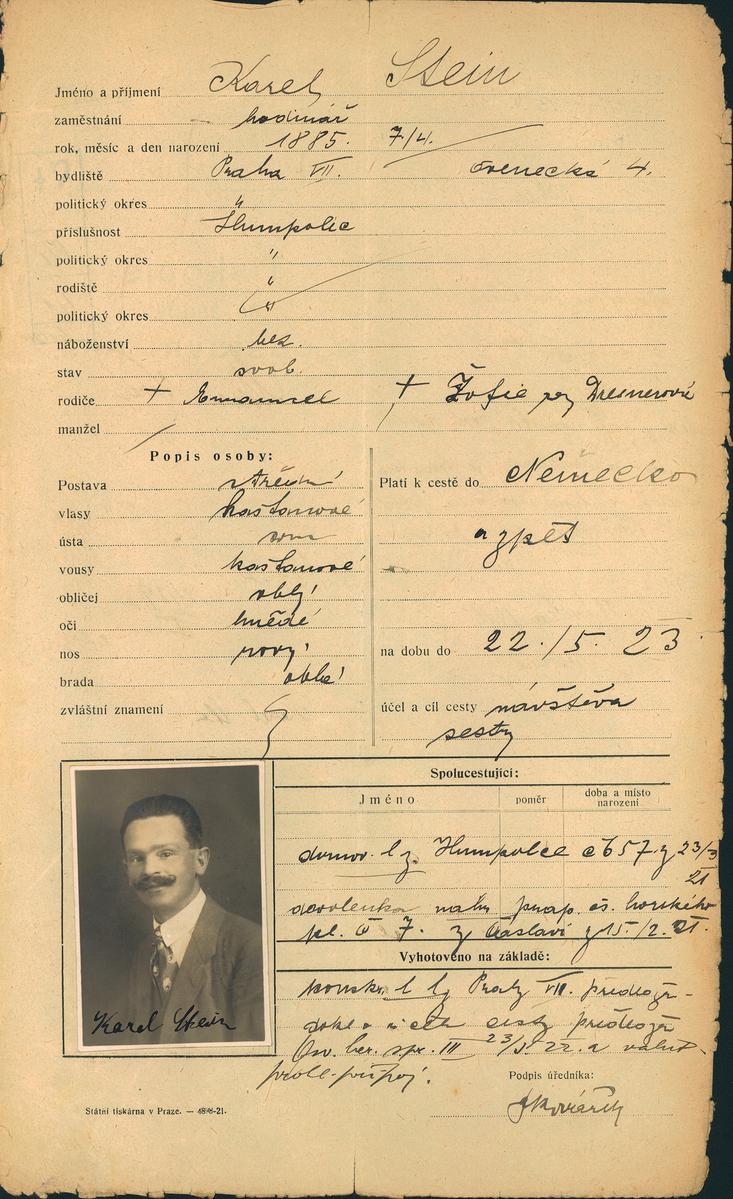 Jméno a příjmení Karel Stein
zaměstnání hodinář
rok, měsíc a den narození 1885. 7/4.
bydliště Praha VII. Ovenecká 4.
politický okres "
příslušnost Humpolec
politický okres "
rodiště "
politický okres "
náboženství bez.
stav svob.
rodiče + Emanuel + Žofie roz Dresnerová
manžel
Popis osoby:
Postava střední
vlasy kaštanové
ústa
vousy kaštanové
obličej oblý
oči hnědé
nos rovný
brada oblá
zvláštní znamení
Platí k cestě do Německo
a zpět
na dobu do 22./5. 23
účel a cíl cesty návštěva
sestry
Spolucestující:
Jméno poměr doba a místo
narození
domov. l z. Humpolce čb 57 z 23/3
21
dovolenka
pl. č 7. z Čáslavi z 15./2. 21.
Vyhotoveno na základě:
konskr. l z Prahy VII.
cesty
III 23/5. 22. a
Karel Stein
Podpis úředníka:
Státní tiskárna v Praze. — 4898-21.